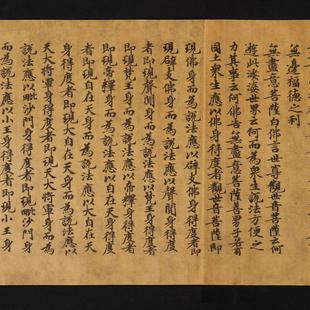 無邊福德之利
無盡意菩薩白佛言世尊觀世音菩薩云何
遊此娑婆世界云何而為眾生說法方便之
力其事云何佛告無盡意菩薩善男子若有
國土眾生應以佛身得度者觀世音菩薩即
現佛身而為說法應以辟支佛身得度者即
現辟支佛身而為說法應以聲聞身得度
者即現聲聞身而為說法應以梵王身得度者
即現梵王身而為說法應以帝釋身得度
者即現帝釋身而為說法應以自在天身得度
者即現自在天身而為說法應以大自在天
身得度者即現大自在天身而為說法應以
天大將軍身得度者即現天大將軍身而為
說法應以毗沙門身得度者即現毗沙門身
而為說法應以小王身得度者即現小王身